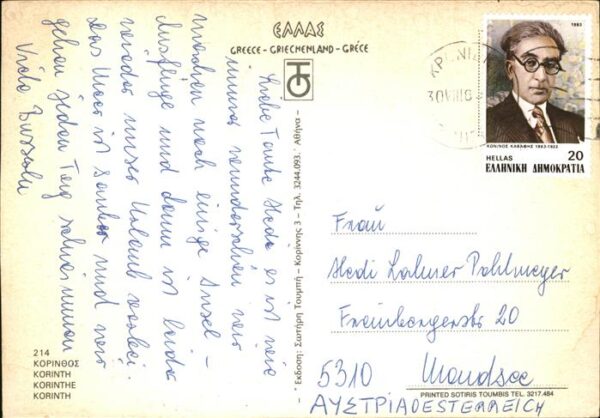 ΕΛΛΑΣ
GREECE - GRIECHENLAND - GRÈCE
Liebe Tante Hedi es ist wie
immer wunderschön wir
machen noch einige Insel-
Ausflüge und dann ist leider
wieder unser Urlaub vorbei.
Das Meer ist sauber und wir
gehen jeden Tag schwimmen
Viele Bussali
- Έκδοση: Σωτήρη Τουμπή - Κορίννης 3 - Τηλ. 3244.093. - Αθήνα -
1983
ΚΩΝ/ΝΟΣ ΚΑΒΑΦΗΣ 1863-1933
HELLAS 20
ΕΛΛΗΝΙΚΗ ΔΗΜΟΚΡΑΤΙΑ
Frau
Hedi Lahner Pohlmeyer
20
5310 Mondsee
ΑΥΣΤΡΙΑ OESTERREICH
214
ΚΟΡΙΝΘΟΣ
KORINTH
KORINTHE
KORINTH
PRINTED SOTIRIS TOUMBIS TEL. 3217.484